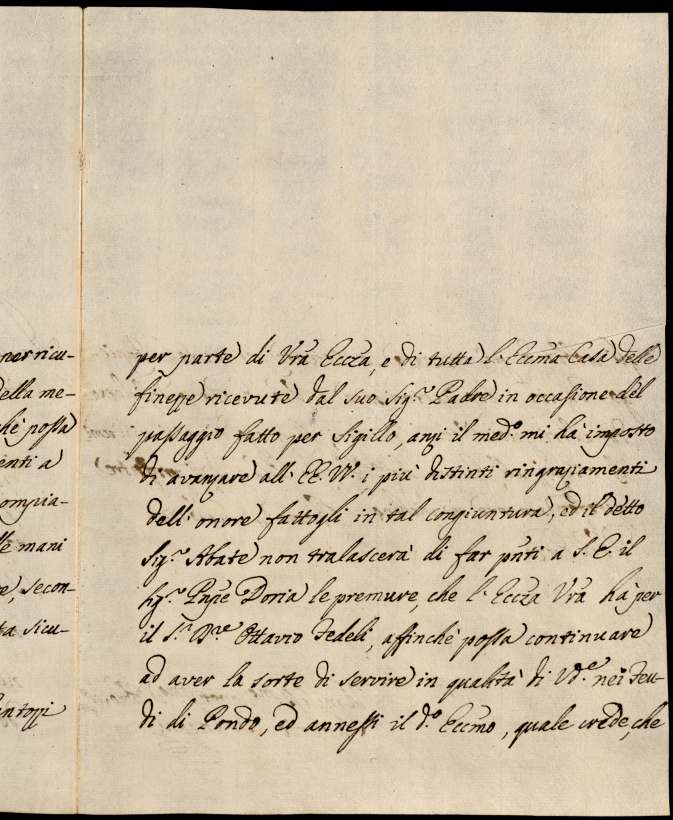 per ricu-
della me-
chè possa
enti a
ompia-
lle mani
e, secon-
ta sicu-
per parte di Vrã Eccza, e di tutta l'Eccma Casa delle
finezze ricevute dal suo Sig.r Padre in occasione del
passaggio fatto per Sigillo, anzi il med.o mi hà imposto
di avanzare all'EE. VV. i più distinti ringraziamenti
dell'onore fattogli in tal congiuntura, ed il detto
Sig.r Abate non tralascerà di far pñti a S. E. il
Sig.r Pnpe Doria le premure, che l'Eccza Vrã hà per
il S.r D.re Ottavio Fedeli, affinchè possa continuare
ad aver la sorte di servire in qualità di Vd.e nei Feu-
di di Pondo, ed annessi il d.o Eccmo, quale crede, che